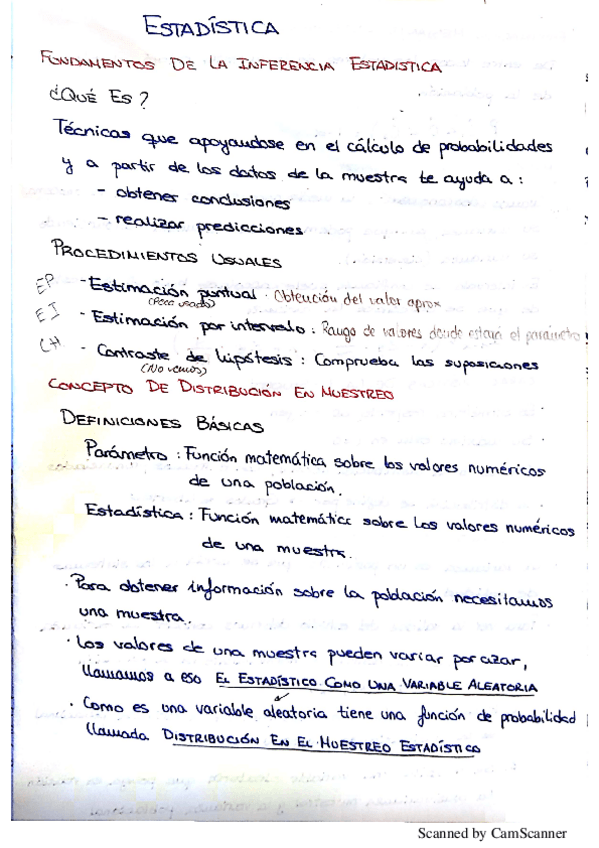 ESTADÍSTICA
FUNDAMENTOS DE LA INFERENCIA ESTADISTICA
¿QUÉ ES?
Técnicas que apoyandose en el cálculo de probabilidades
y a partir de los datos de la muestra te ayuda a:
- obtener conclusiones
- realizar predicciones
PROCEDIMIENTOS USUALES
EP - Estimación puntual. Obtención del valor aprox
(Poco usado)
EI - Estimación por intervalo: Rango de valores donde estará el parámetro
CH - Contraste de hipótesis: Comprueba las suposiciones
(No vemos)
CONCEPTO DE DISTRIBUCIÓN EN MUESTREO
DEFINICIONES BÁSICAS
Parámetro: Función matemática sobre los valores numéricos
de una población.
Estadística: Función matemática sobre los valores numéricos
de una muestra.
· Para obtener información sobre la población necesitamos
una muestra.
· Los valores de una muestra pueden variar por azar,
llamamos a eso EL ESTADÍSTICO COMO UNA VARIABLE ALEATORIA
· Como es una variable aleatoria tiene una función de probabilidad
llamada DISTRIBUCIÓN EN EL MUESTREO ESTADÍSTICO
Scanned by CamScanner